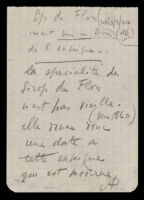 Sps de Flon
ment
de l'enseigne.
la spécialité de
Sirop de Flon
n'est pas vieille.
elle donne donc
une date à
cette enseigne
qui est moderne